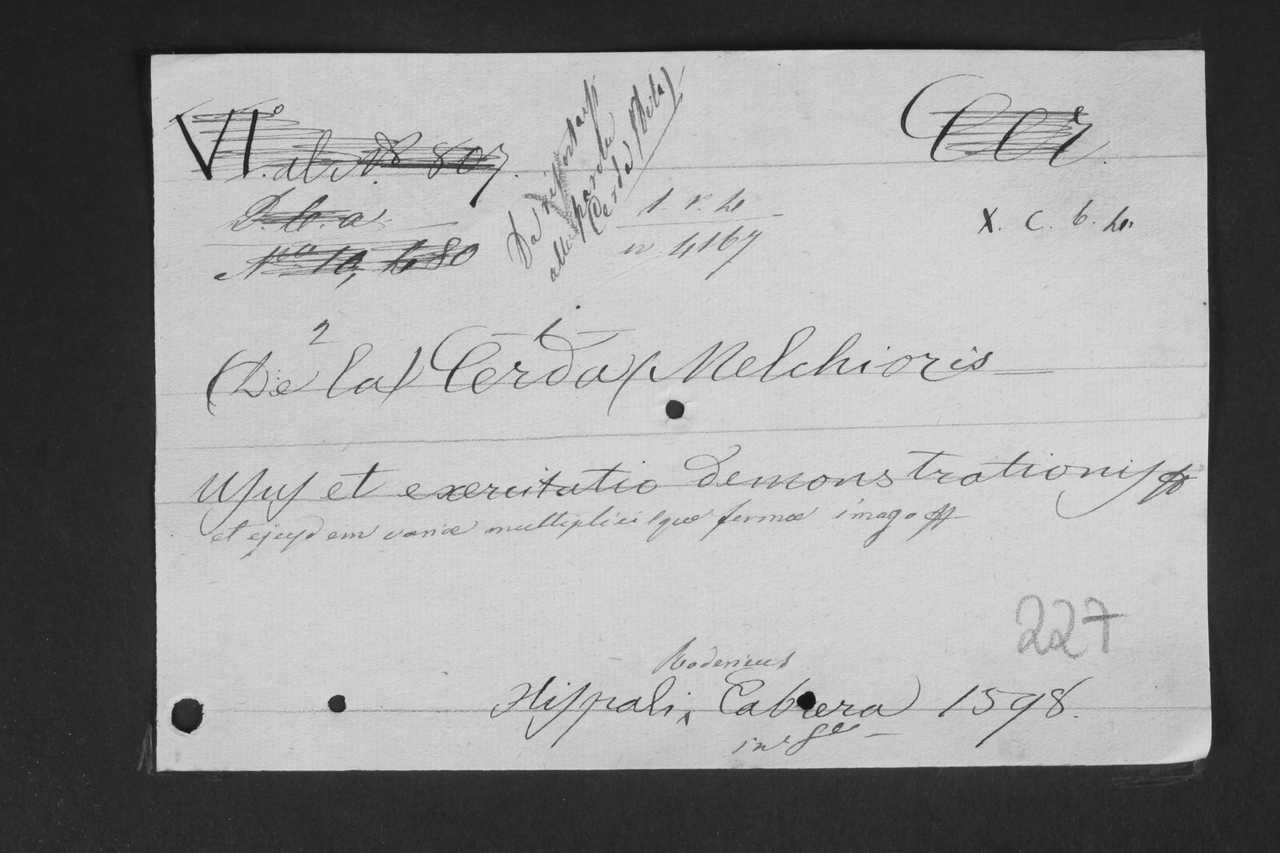 VI°
Cer.
Da riportarsi
alla parola
Cerda (de la)
1. r. 4
X. c. b. 4.
2 1
(De la) Cerda (Melchioris
Usus et exercitatio demonstrationis
et ejusdem variæ multiplicisque formæ imago
227
Rodericus
Hispali, Cabrera 1598.
in